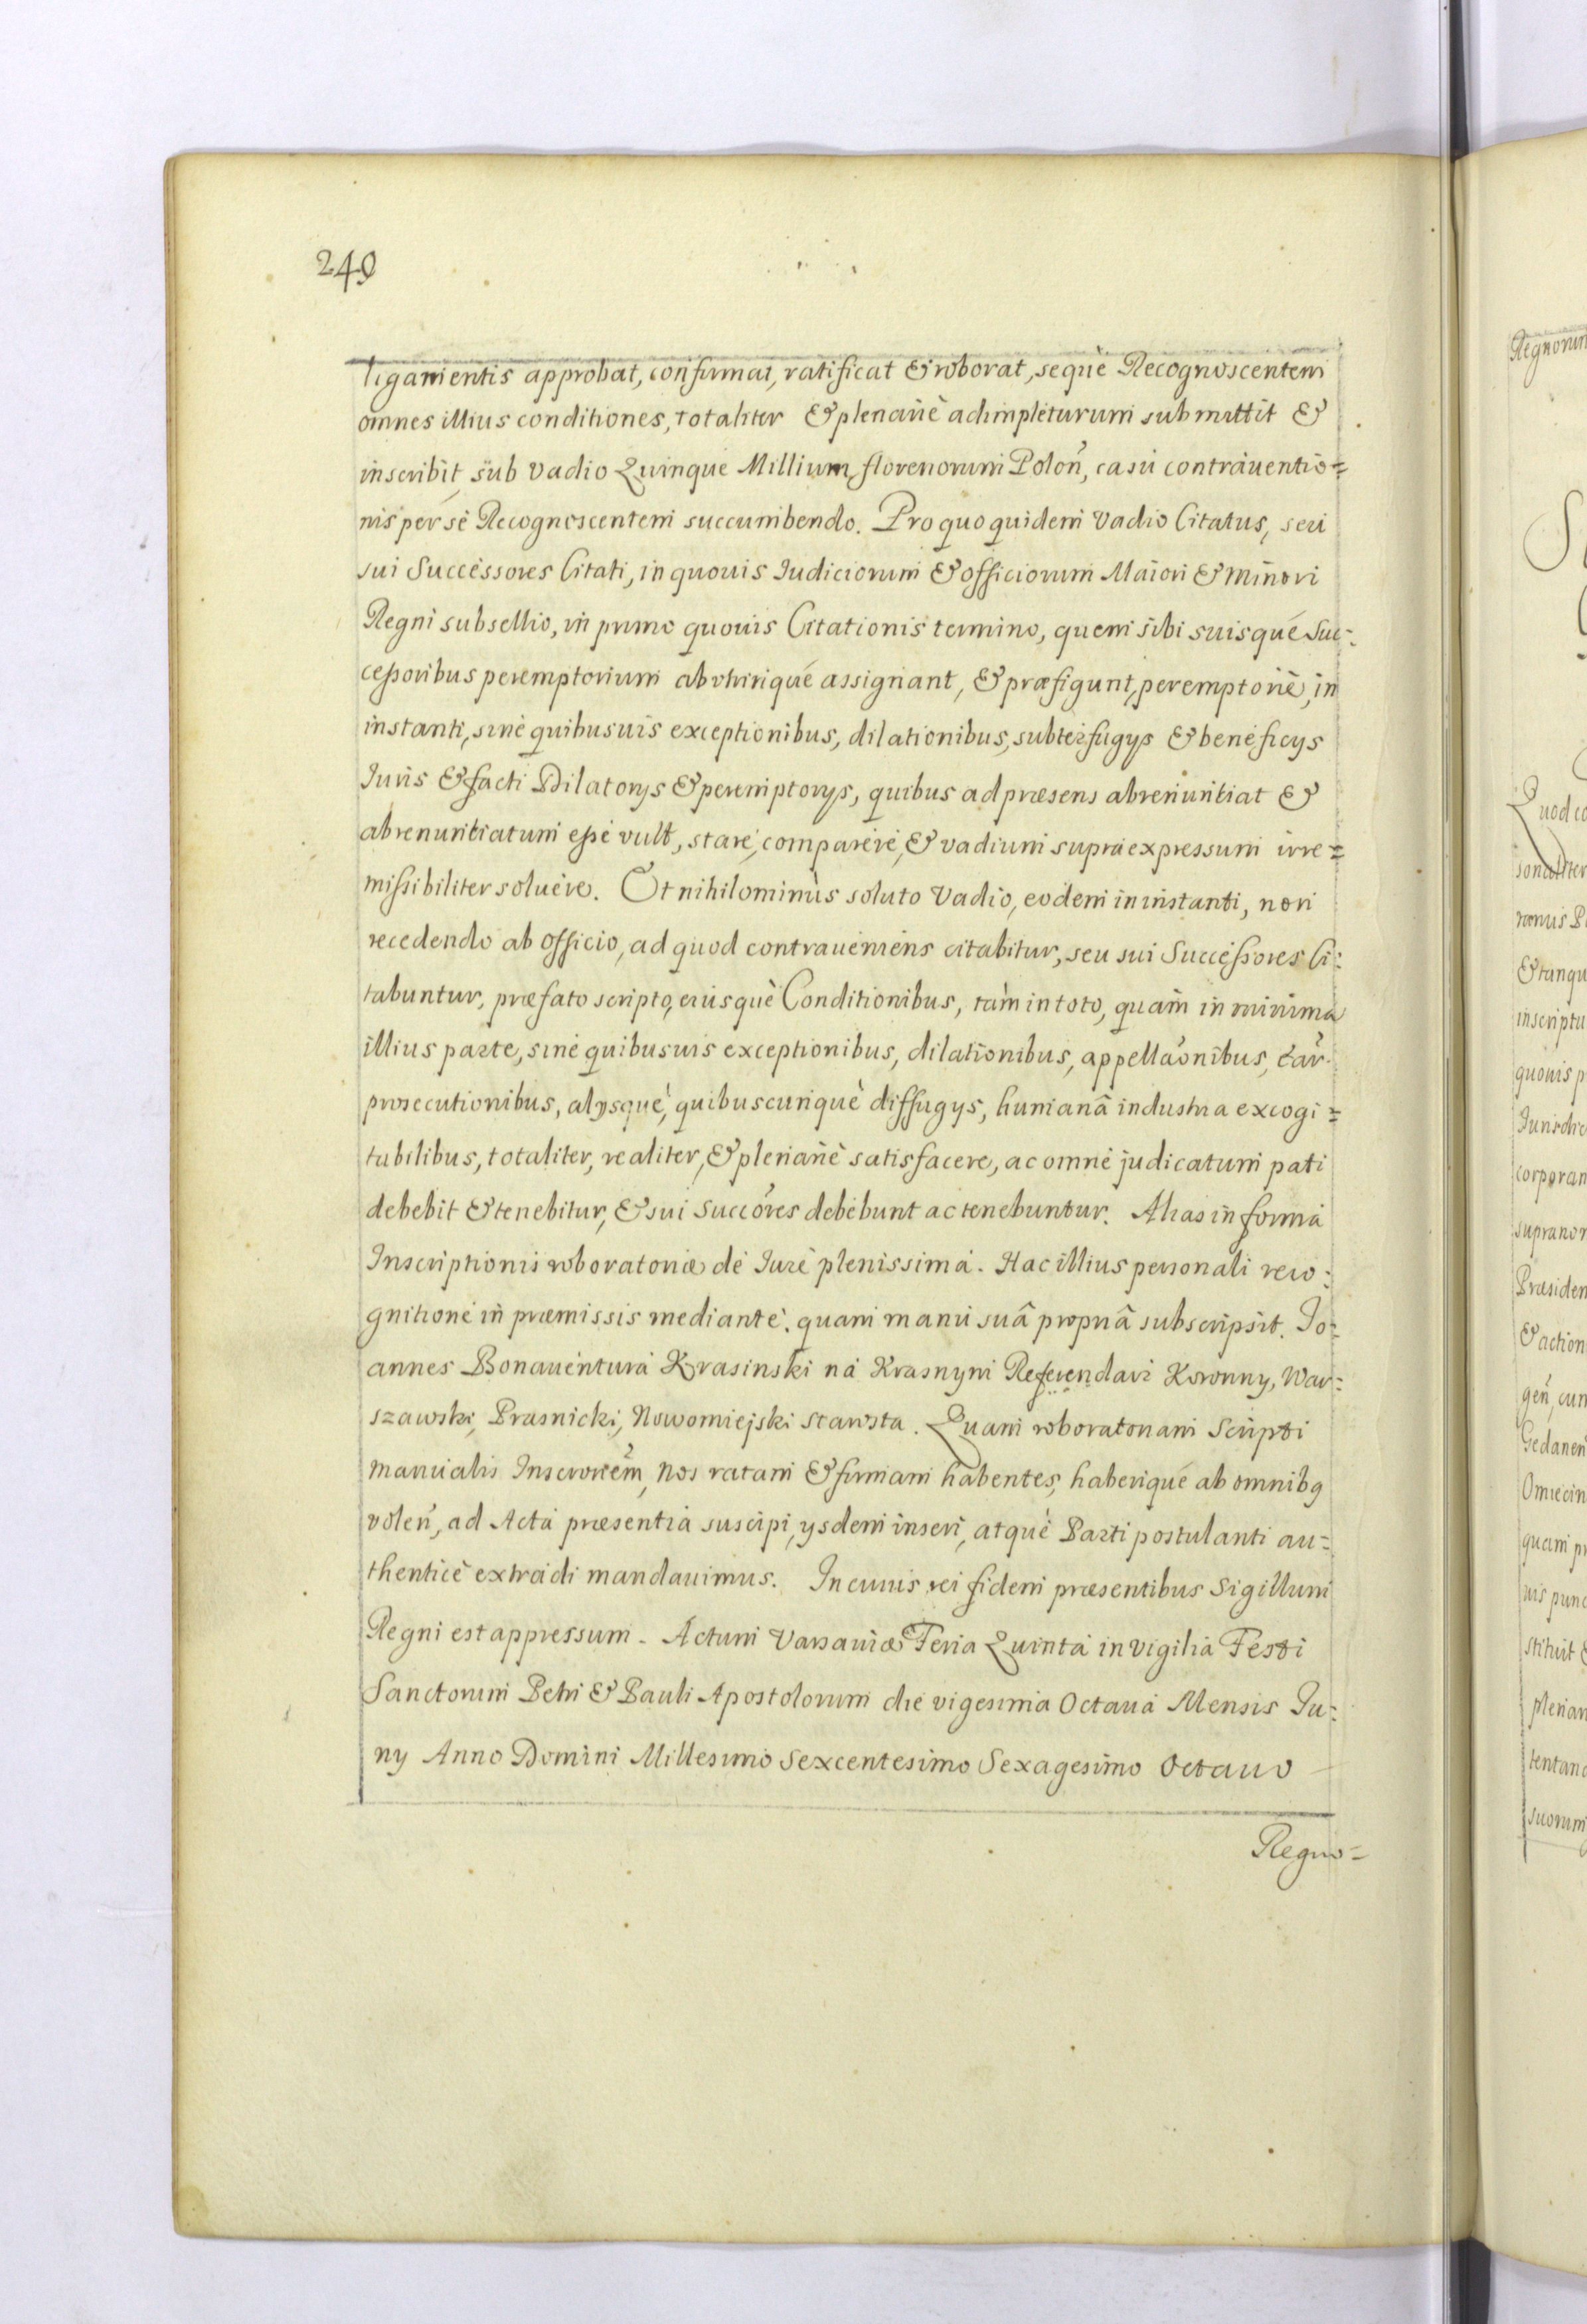 249
ligamentis approbat, confirmat, ratificat & roborat, sequè Recognoscentem
omnes illius conditiones, totaliter & plenariè adimpleturum submittit &
inscribit, sub vadio Quinque Millium florenorum Poloñ, casu contrauentio=
nis per se Recognoscentem succumbendo. Pro quo quidem vadio Citatus, seu
sui Successores Citati, in quouis Iudiciorum & officiorum Maiori & minori
Regni subsellio, in primo quouis Citationis termino, quem sibi suisqué Suc=
cessoribus peremptorium ab vtrinqué assignant, & præfigunt, peremptoriè, in
instanti, sine quibusuis exceptionibus, dilationibus, subterfugys & beneficys
Iuris & facti Dilatorys & peremptorys, quibus ad præsens abrenuntiat &
abrenuntiatum esse vult, stare, comparere, & vadium supra expressum irre=
missibiliter soluere. Et nihilominùs soluto Vadio, eodem in instanti, non
recedendo ab officio, ad quod contraueniens citabitur, seu sui Successores Ci=
tabuntur, præfato scripto, eiusquè Conditionibus, tàm in toto, quàm in minima
illius parte, sine quibusuis exceptionibus, dilationibus, appellaõnibus, ear̃
prosecutionibus, alysquè, quibuscunquè diffugys, humanâ industria excogi=
tabilibus, totaliter, realiter, & plenariè satisfacere, ac omne judicatum pati
debebit & tenebitur, & sui Succõres debebunt ac tenebuntur. Alias in forma
Inscriptionis roboratoriæ de Iure plenissima. Hac illius personali reco=
gnitione in præmissis mediante. quam manu suâ propriâ subscripsit. Jo=
annes Bonauentura Krasinski na Krasnym Referendarz Koronny, War=
szawski, Prasnicki, Nowomiejski starosta. Quam roboratoriam Scripti
manualis Inscroñem, Nos ratam & firmam habentes, haberiqué ab omnibq
voleñ, ad Acta præsentia suscipi, ysdem inseri, atquè Parti postulanti au=
thenticè extradi mandauimus. In cuius rei fidem præsentibus Sigillum
Regni est appressum. Actum Varsauiæ Feria Quinta in vigilia Festi
Sanctorum Petri & Pauli Apostolorum die vigesima Octaua Mensis Ju=
ny Anno Domini Millesimo Sexcentesimo Sexagesimo Octauo
Regno=